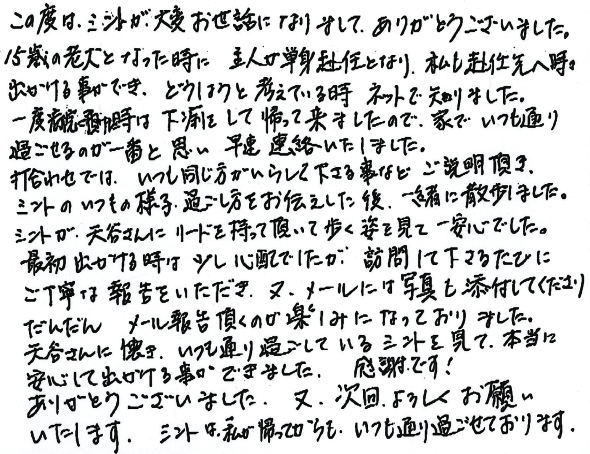 この度は、ミントが、大変お世話になりまして、ありがとうございました。
15歳の老犬となった時に 主人が単身赴任となり、私も赴任先へ時々
出かける事ができ、どうしようと考えている時 ネットで知りました。
一度病院へ預けた時は下痢をして帰って来ましたので、家でいつも通り
過ごせるのが一番と思い 早速連絡いたしました。
打合わせでは、いつも同じ方がいらして下さる事など ご説明頂き、
ミントのいつもの様子、過ごし方をお伝えした後、一緒に散歩しました。
ミントが、天谷さんにリードを持って頂いて歩く姿を見て一安心でした。
最初出かける時は少し心配でしたが、訪問して下さるたびに
ご丁寧な報告をいただき、又、メールには写真も添付してくださり
だんだん メール報告頂くのが楽しみになっておりました。
天谷さんに懐き、いつも通り過ごしているミントを見て、本当に
安心して出かける事ができました。 感謝です!
ありがとうございました。又、次回、よろしくお願い
いたします。 ミントは、私が帰ってからも、いつも通り過ごせております。